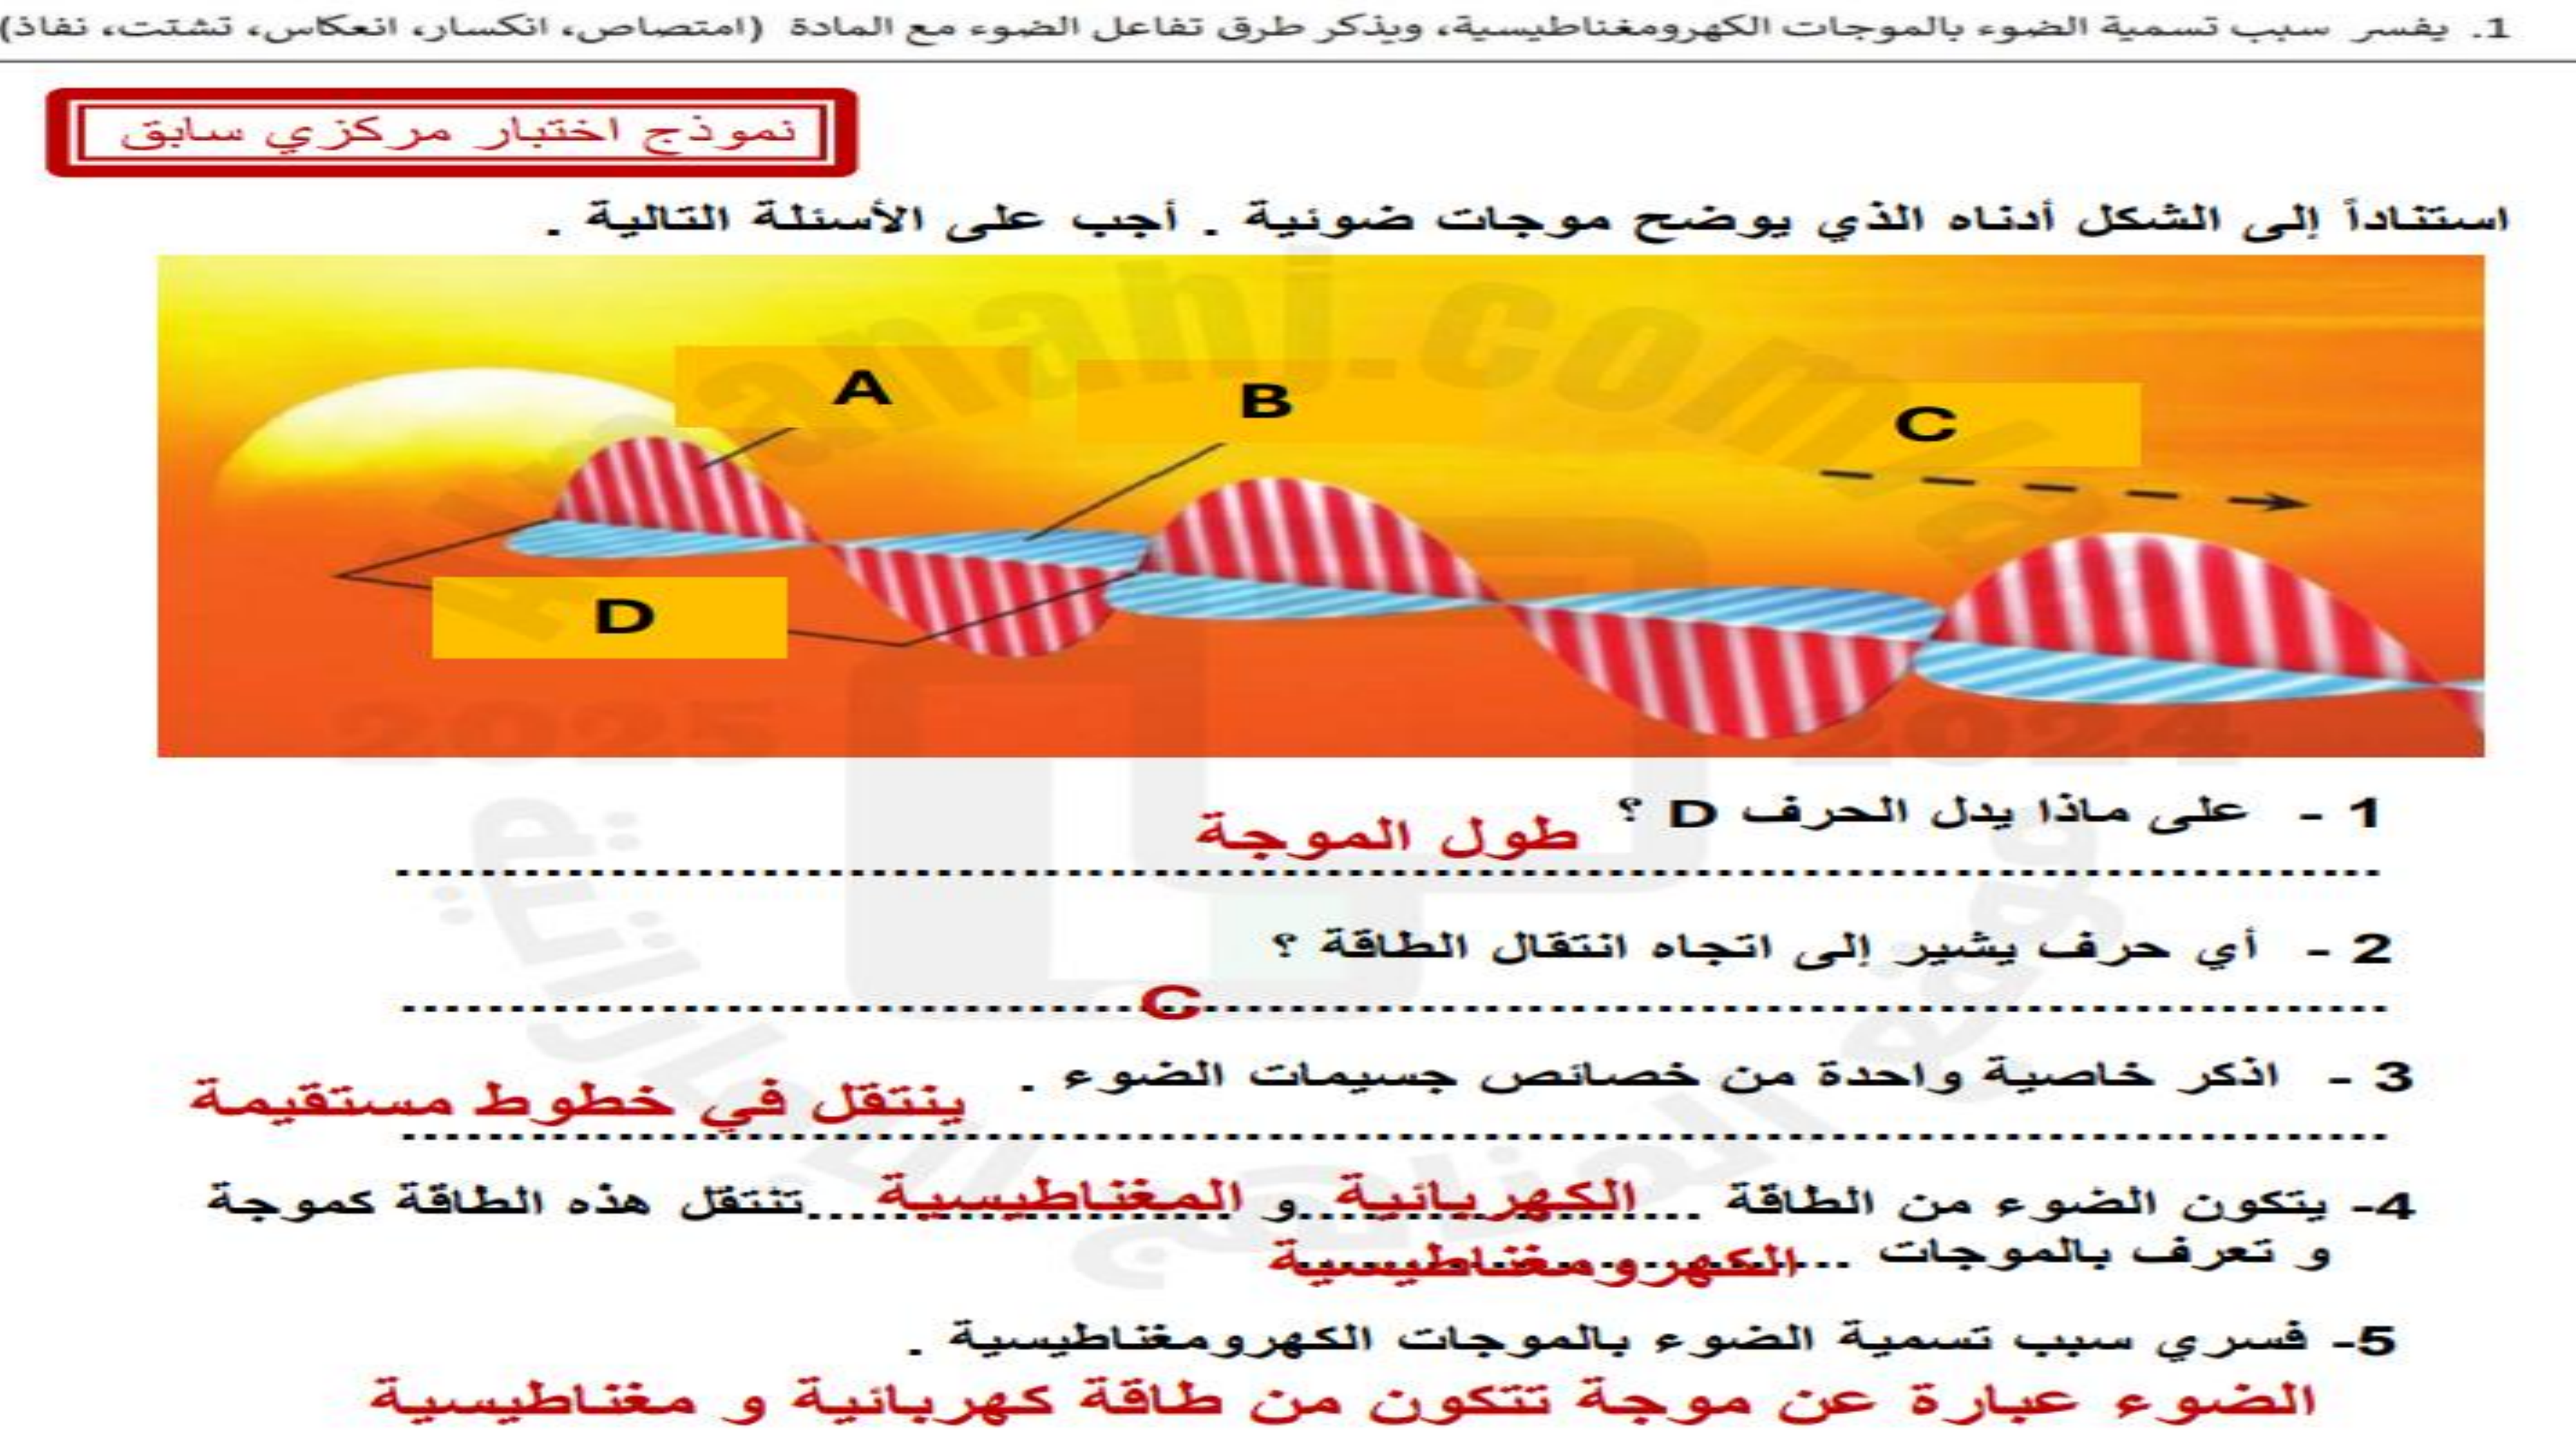 1. يفسر سبب تسمية الضوء بالموجات الكهرومغناطيسية، ويذكر طرق تفاعل الضوء مع المادة (امتصاص، انكسار، انعكاس، تشتت، نفاذ)
نموذج اختبار مركزي سابق
استناداً إلى الشكل أدناه الذي يوضح موجات ضوئية . أجب على الأسئلة التالية .
A
B
C
D
almanahj.com/ae
2025
2024
موقع المناهج الإماراتية
1 - على ماذا يدل الحرف D ؟ طول الموجة
2 - أي حرف يشير إلى اتجاه انتقال الطاقة ؟
C
3 - اذكر خاصية واحدة من خصائص جسيمات الضوء . ينتقل في خطوط مستقيمة
4- يتكون الضوء من الطاقة ... الكهربائية ... و المغناطيسية ... تنتقل هذه الطاقة كموجة
و تعرف بالموجات ... الكهرومغناطيسية
5- فسري سبب تسمية الضوء بالموجات الكهرومغناطيسية .
الضوء عبارة عن موجة تتكون من طاقة كهربائية و مغناطيسية